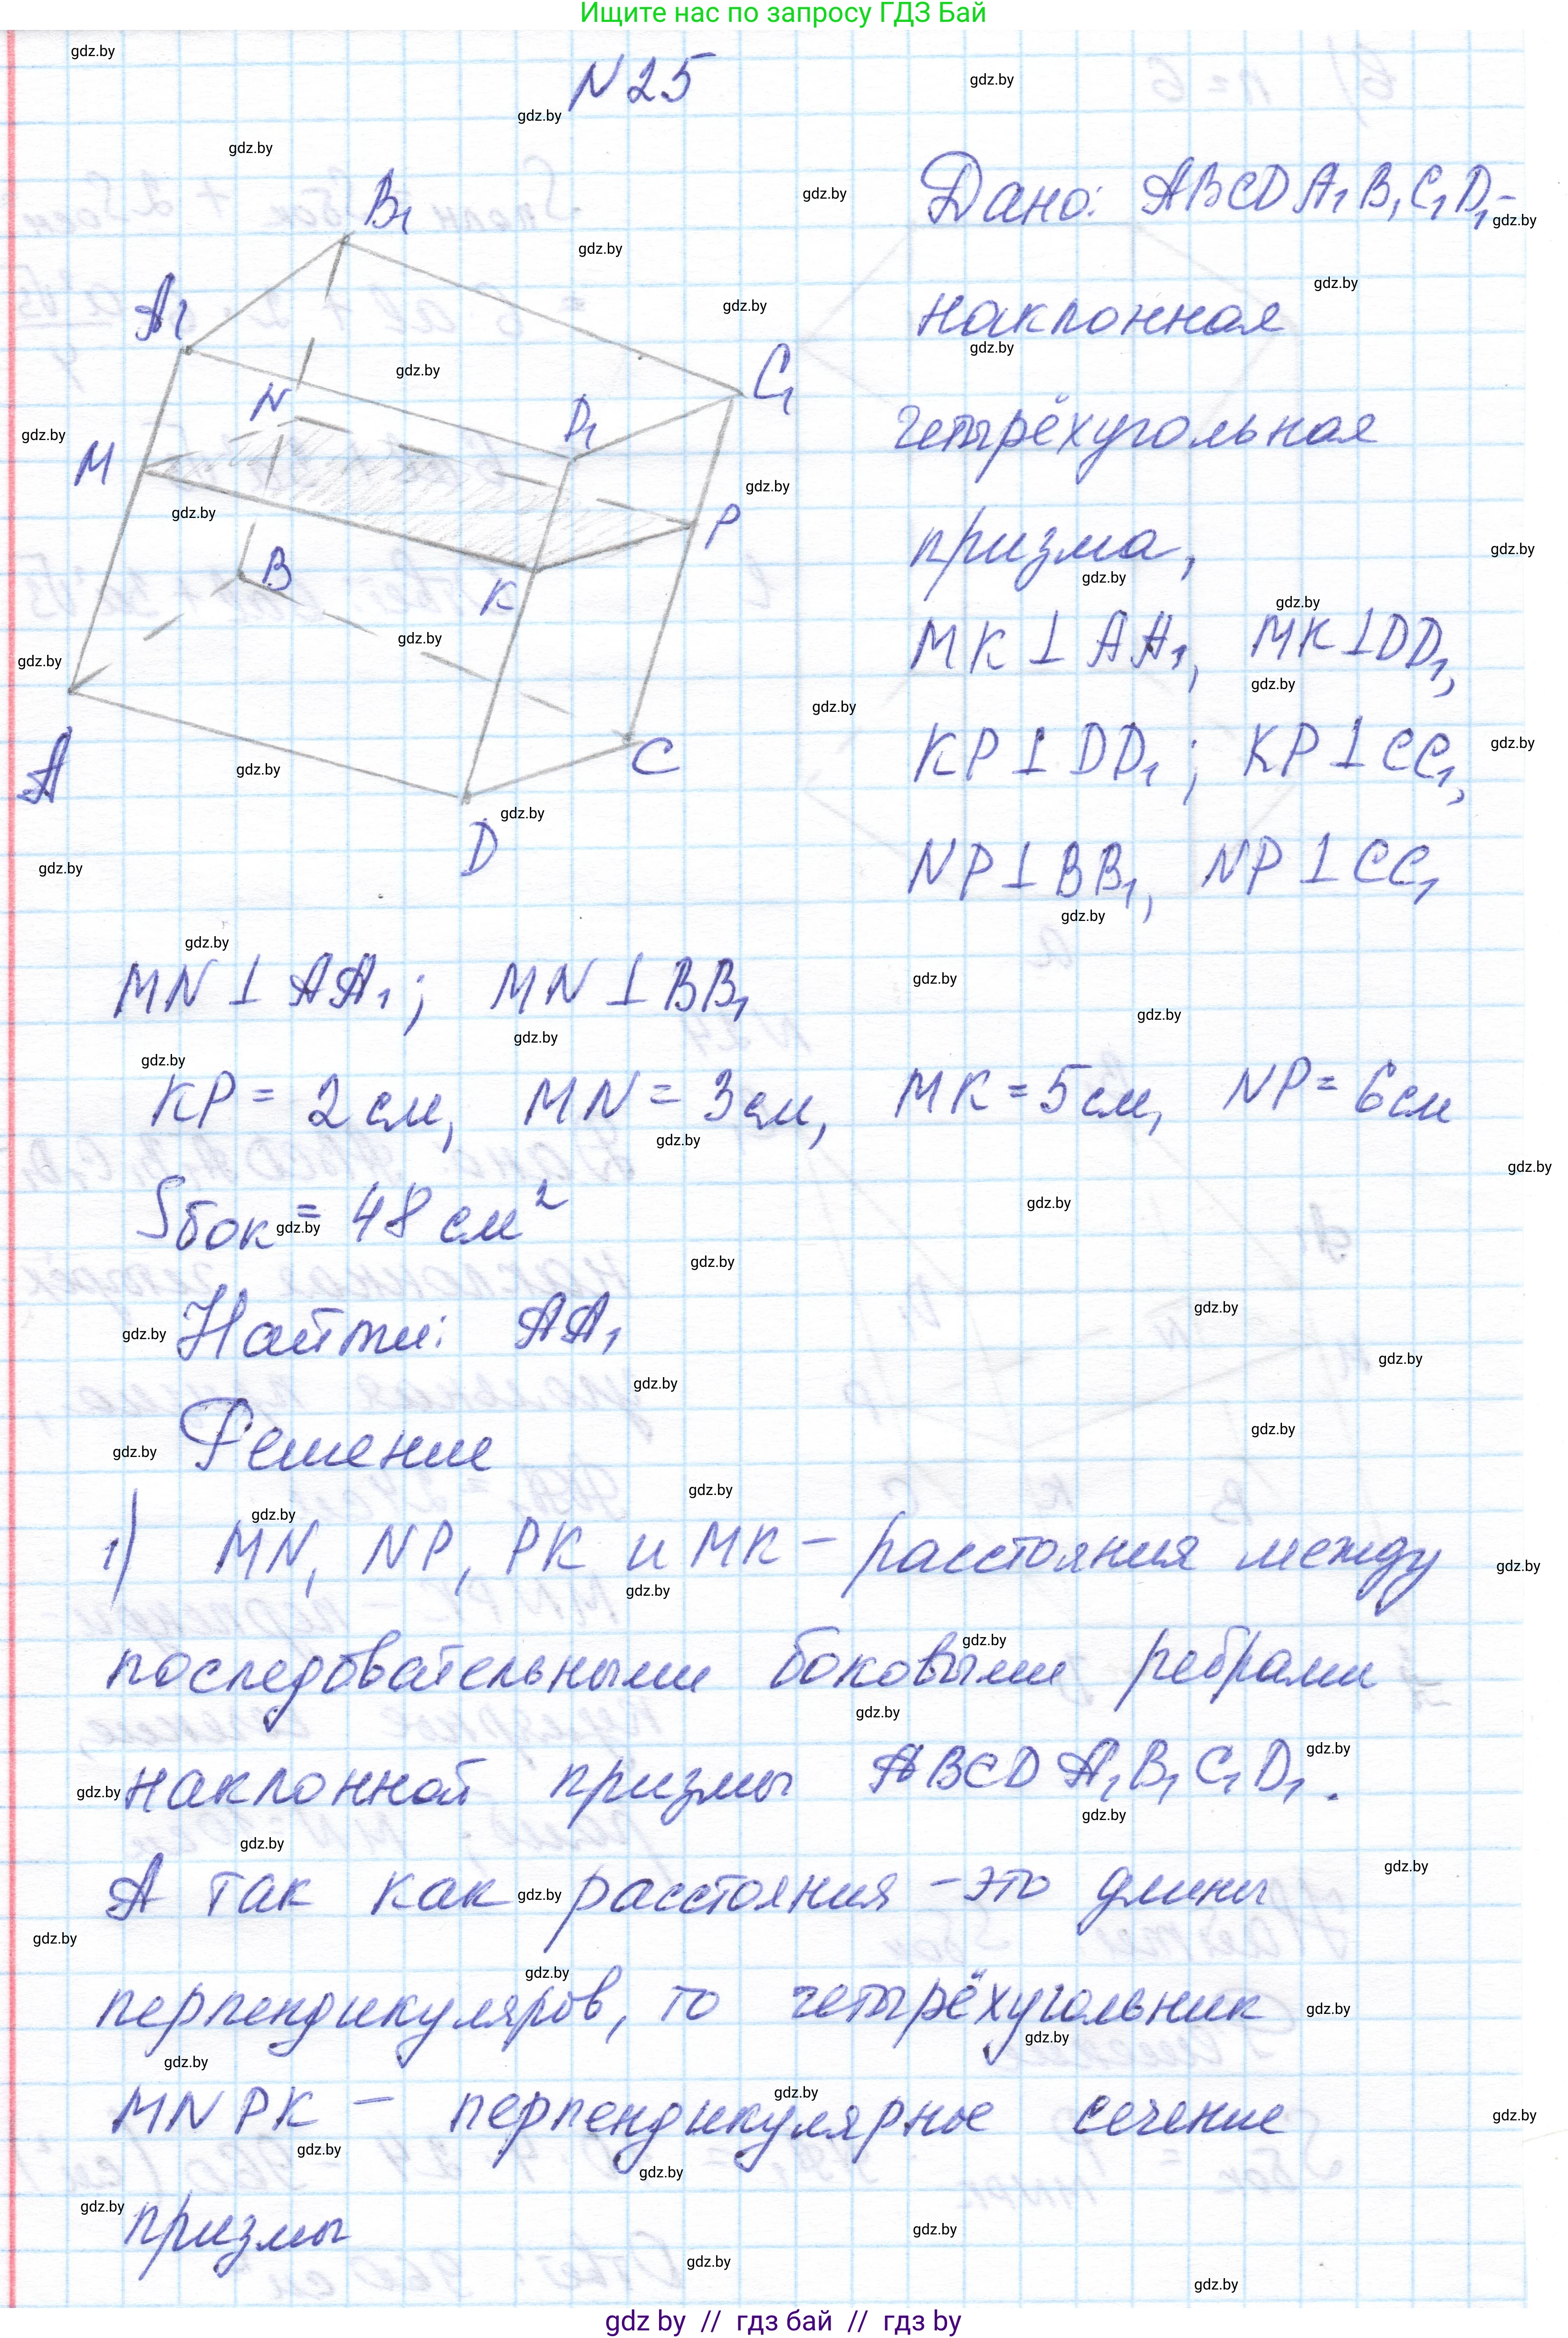 Ищите нас по запросу ГДЗ Бай
N25
Дано: ABCDA₁B₁C₁D₁-
наклонная
четырёхугольная
призма,
MK⊥AA₁, MK⊥DD₁,
KP⊥DD₁; KP⊥CC₁,
NP⊥BB₁, NP⊥CC₁
B₁
A₁
C₁
N
D₁
M
P
B
K
A
C
D
MN⊥AA₁; MN⊥BB₁
KP=2см, MN=3см, MK=5см, NP=6см
Sбок=48 см²
Найти: AA₁
Решение
1) MN, NP, PK и MK – расстояния между
последовательными боковыми ребрами
наклонной призмы ABCDA₁B₁C₁D₁.
А так как расстояния – это длины
перпендикуляров, то четырёхугольник
MNPK – перпендикулярное сечение
призмы
gdz by // гдз бай // гдз by